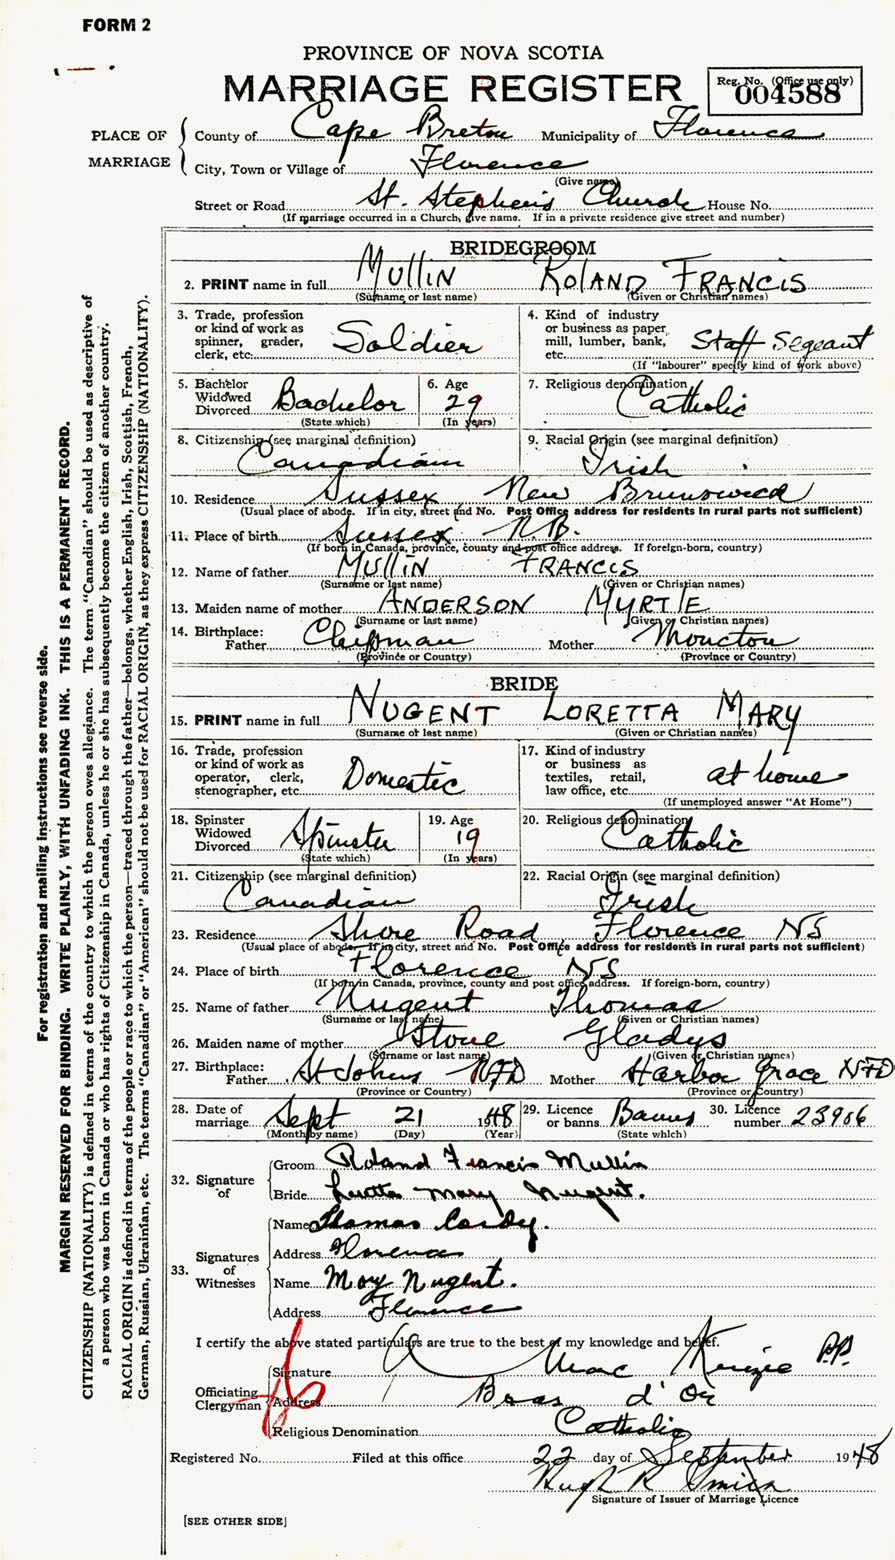 FORM 2
PROVINCE OF NOVA SCOTIA
MARRIAGE REGISTER
Reg. No. (Office use only)
004588
PLACE OF MARRIAGE
County of Cape Breton Municipality of Florence
City, Town or Village of Florence
(Give name)
Street or Road St. Stephen's Church House No.
(If marriage occurred in a Church, give name. If in a private residence give street and number)
BRIDEGROOM
2. PRINT name in full MULLIN ROLAND FRANCIS
(Surname or last name) (Given or Christian names)
3. Trade, profession or kind of work as spinner, grader, clerk, etc. Soldier
4. Kind of industry or business as paper mill, lumber, bank, etc. Staff Segeant
(If "labourer" specify kind of work above)
5. Bachelor Widowed Divorced Bachelor
(State which)
6. Age 29
(In years)
7. Religious denomination Catholic
8. Citizenship (see marginal definition) Canadian
9. Racial Origin (see marginal definition) Irish
10. Residence Sussex New Brunswick
(Usual place of abode. If in city, street and No. Post Office address for residents in rural parts not sufficient)
11. Place of birth Sussex N.B.
(If born in Canada, province, county and post office address. If foreign-born, country)
12. Name of father MULLIN FRANCIS
(Surname or last name) (Given or Christian names)
13. Maiden name of mother ANDERSON MYRTLE
(Surname or last name) (Given or Christian names)
14. Birthplace: Father Chipman Mother Moncton
(Province or Country) (Province or Country)
BRIDE
15. PRINT name in full NUGENT LORETTA MARY
(Surname or last name) (Given or Christian names)
16. Trade, profession or kind of work as operator, clerk, stenographer, etc. Domestic
17. Kind of industry or business as textiles, retail, law office, etc. at home
(If unemployed answer "At Home")
18. Spinster Widowed Divorced Spinster
(State which)
19. Age 19
(In years)
20. Religious denomination Catholic
21. Citizenship (see marginal definition) Canadian
22. Racial Origin (see marginal definition) Irish
23. Residence Shore Road Florence NS
(Usual place of abode. If in city, street and No. Post Office address for residents in rural parts not sufficient)
24. Place of birth Florence NS
(If born in Canada, province, county and post office address. If foreign-born, country)
25. Name of father Nugent Thomas
(Surname or last name) (Given or Christian names)
26. Maiden name of mother Stone Gladys
(Surname or last name) (Given or Christian names)
27. Birthplace: Father St Johns NFD Mother Harbor Grace NFD
(Province or Country) (Province or Country)
28. Date of marriage Sept 21 1948
(Month by name) (Day) (Year)
29. Licence or banns Banns
(State which)
30. Licence number 23906
32. Signature of
Groom Roland Francis Mullin
Bride Loretta Mary Nugent.
33. Signatures of Witnesses
Name Thomas Cordy.
Address Florence
Name Mary Nugent.
Address Florence
I certify the above stated particulars are true to the best of my knowledge and belief.
Officiating Clergyman
Signature A MacKenzie P.P.
Address Bras d'Or
Religious Denomination Catholic
Registered No. Filed at this office 22 day of September 1948
Hugh R
Signature of Issuer of Marriage Licence
[SEE OTHER SIDE]
For registration and mailing instructions see reverse side.
MARGIN RESERVED FOR BINDING. WRITE PLAINLY, WITH UNFADING INK. THIS IS A PERMANENT RECORD.
CITIZENSHIP (NATIONALITY) is defined in terms of the country to which the person owes allegiance. The term "Canadian" should be used as descriptive of
a person who was born in Canada or who has rights of Citizenship in Canada, unless he or she has subsequently become the citizen of another country.
RACIAL ORIGIN is defined in terms of the people or race to which the person—traced through the father—belongs, whether English, Irish, Scottish, French,
German, Russian, Ukrainian, etc. The terms "Canadian" or "American" should not be used for RACIAL ORIGIN, as they express CITIZENSHIP (NATIONALITY).